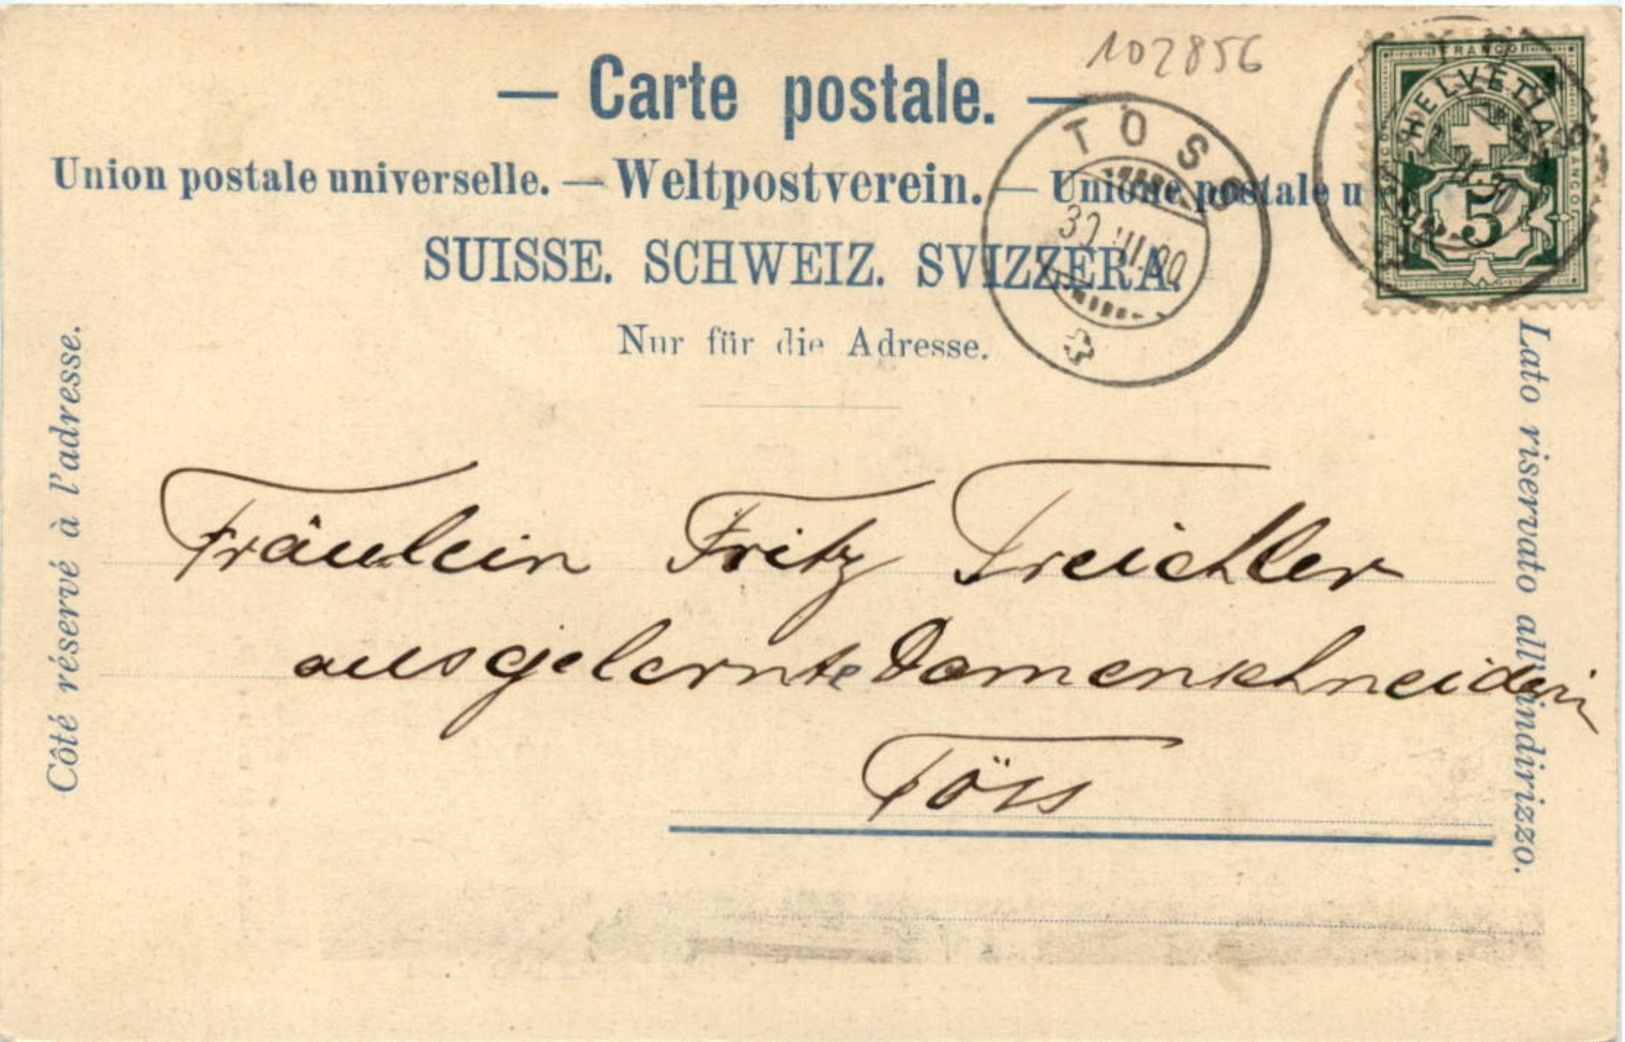 102856
— Carte postale. —
Union postale universelle. — Weltpostverein. — Unione postale u
SUISSE. SCHWEIZ. SVIZZERA.
Nur für die Adresse.
TÖSS
FRANCO
HELVETIA
5
Côté réservé à l'adresse.
Lato riservato all'indirizzo.
Fräulein Fritz Treichler
ausgelernte Damenschneiderin
Töss